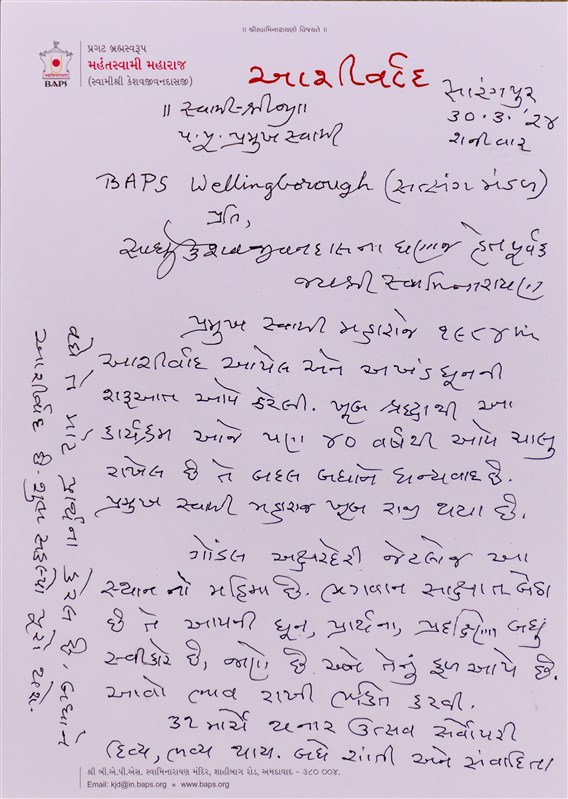 ॥ શ્રીસ્વામિનારાયણો વિજયતે ॥
પ્રગટ બ્રહ્મસ્વરૂપ
મહંતસ્વામી મહારાજ
(સ્વામીશ્રી કેશવજીવનદાસજી)
BAPS
આશીર્વાદ
સારંગપુર
૩૦.૩.'૨૪
શનીવાર
॥ સ્વામી-શ્રીજી॥
પ.પૂ. પ્રમુખ સ્વામી
BAPS Wellingborough (સત્સંગ મંડળ)
પ્રતિ,
સાધુ કેશવજીવનદાસના ઘણાજ હેતપૂર્વક
જયશ્રી સ્વામિનારાયણ
પ્રમુખ સ્વામી મહારાજે ૧૯૮૪માં
આશીર્વાદ આપેલ અને અખંડ ધૂનની
શરૂઆત આપે કરેલી. ખૂબ શ્રદ્ધાથી આ
કાર્યક્રમ આજે પણ ૪૦ વર્ષથી આપે ચાલુ
રાખેલ છે તે બદલ બધાને ધન્યવાદ છે.
પ્રમુખ સ્વામી મહારાજ ખૂબ રાજી થયા છે.
ગોંડલ અક્ષરદેરી જેટલોજ આ
સ્થાન નો મહિમા છે. ભગવાન સાક્ષાત બેઠા
છે તે આપની ધૂન, પ્રાર્થના, પ્રદક્ષિણા બધું
સ્વીકારે છે, જાણે છે અને તેનું ફળ આપે છે.
આવો ભાવ રાખી ભક્તિ કરવી.
૩૧ માર્ચે થનાર ઉત્સવ સર્વોપરી
દિવ્ય, ભવ્ય થાય. બધે શાંતી અને સંવાદિતા
વધે તે માટે પ્રાર્થના કરેલ છે. બધાને
આશીર્વાદ છે. શુભ સંકલ્પો પૂરો થશે.
શ્રી બી.એ.પી.એસ. સ્વામિનારાયણ મંદિર, શાહીબાગ રોડ, અમદાવાદ - ૩૮૦ ૦૦૪.
Email: kjd@in.baps.org • www.baps.org